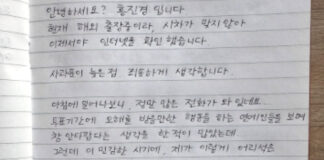 안녕하세요? 홍진경 입니다
현재 해외 출장중이라, 시차가 맞지 않아
이제서야 인터넷을 확인 했습니다
사과문이 늦은점 죄송하게 생각합니다.
아침에 일어나보니, 정말 많은 전화가 와 있더군요..
투표기간에 오해를 받을만한 행동을 하는 연예인들을 보며
참 안타깝다는 생각을 한 적이 많았는데
그런데 더 민감한 시기에, 제가 이렇게 어리석은